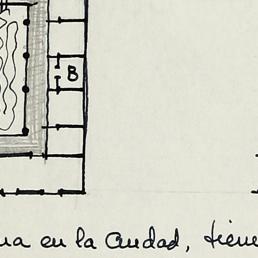 B
en la ciudad, tiene